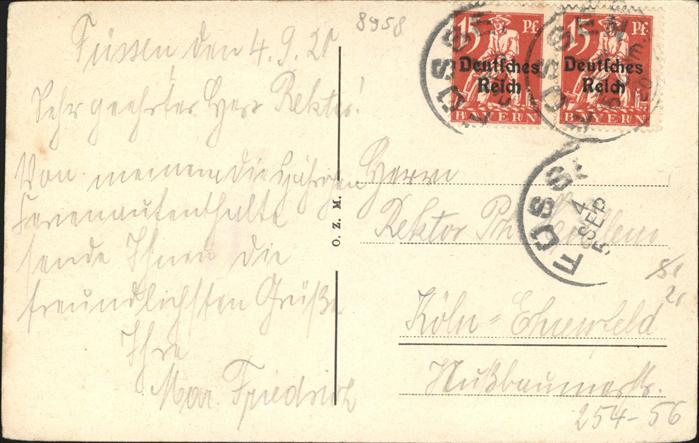 8958
Füssen den 4.9.20
Sehr geehrter Herr Rektor!
Von meinem diesjährigen
Ferienaufenthalte
sende Ihnen die
freundlichsten Grüße
Ihre
Mar. Friedrich
O. Z. M.
15 Pf. 15 Pf.
Deutsches Deutsches
Reich Reich
BAYERN BAYERN
FÜSSEN
4 SEP
Herrn
Rektor Ph.
Köln-Ehrenfeld
Nußbaumerstr.
254-56